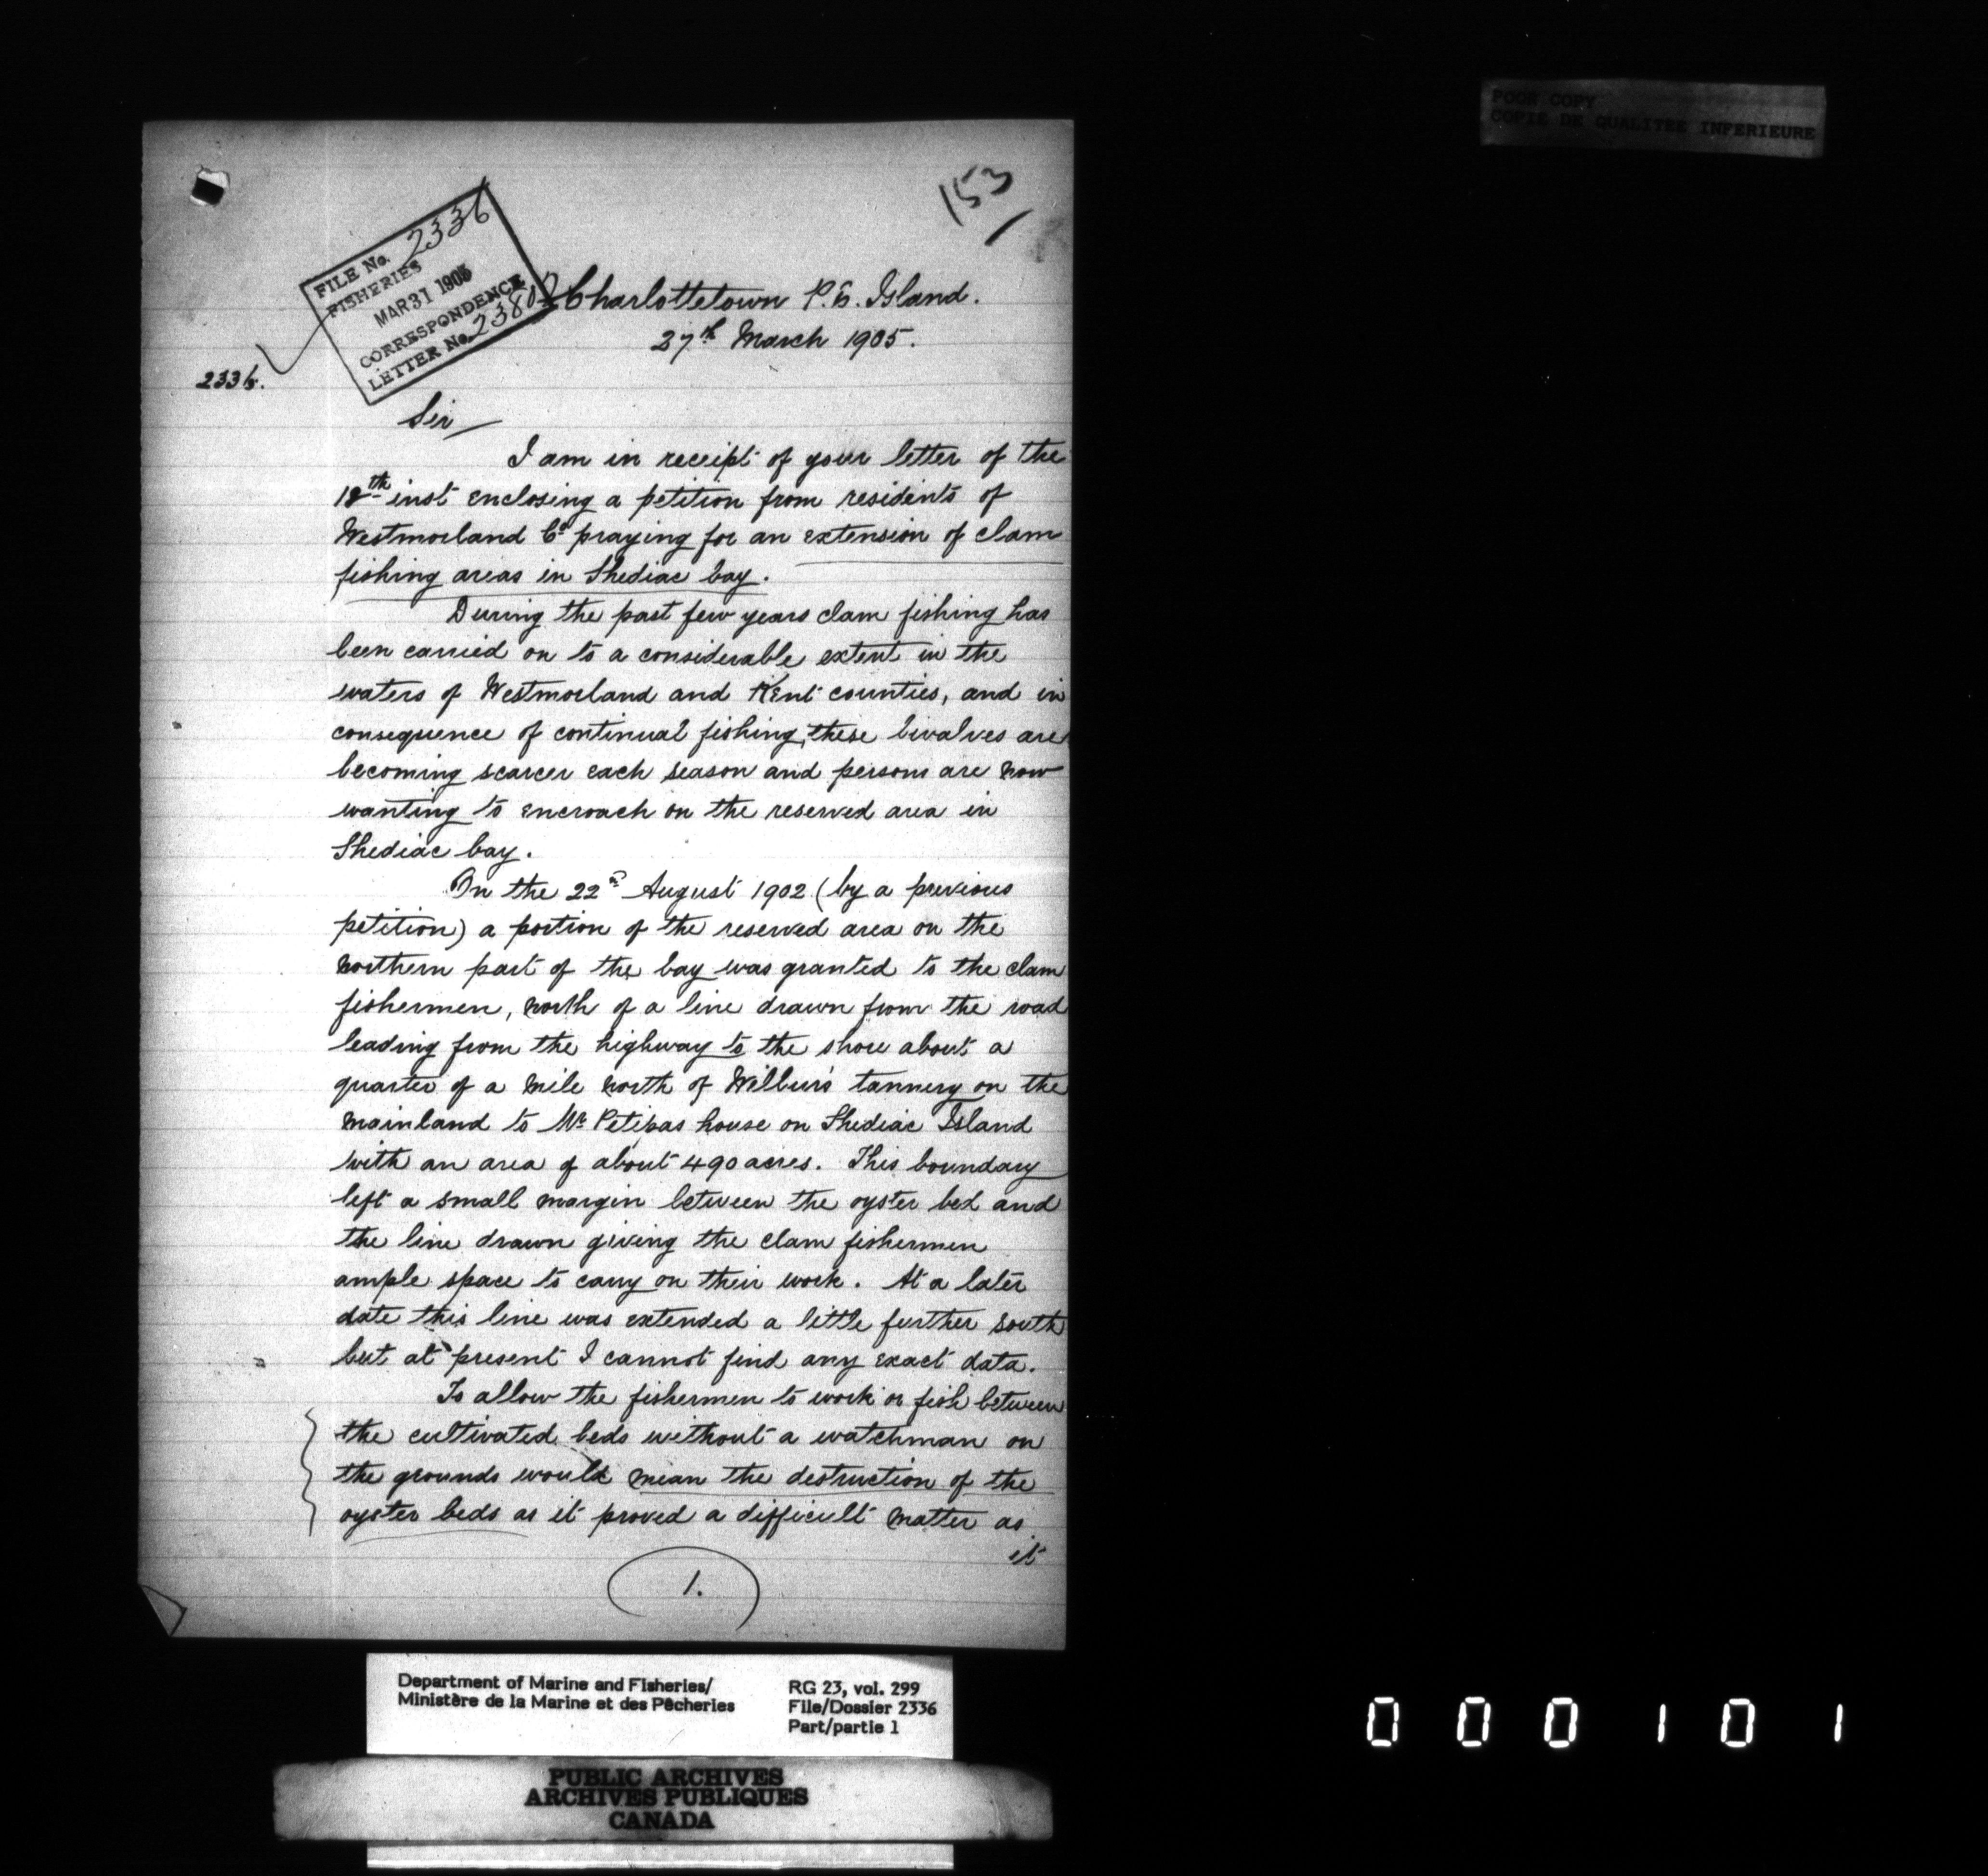 POOR COPY
COPIE DE QUALITEE INFERIEURE
153
FILE No. 2336
FISHERIES
MAR 31 1905
CORRESPONDENCE
LETTER No. 2380
2336.
Charlottetown P.E. Island.
27th March 1905.
Sir
I am in receipt of your letter of the
18th inst enclosing a petition from residents of
Westmorland Co praying for an extension of clam
fishing areas in Shediac bay.
During the past few years clam fishing has
been carried on to a considerable extent in the
waters of Westmorland and Kent counties, and in
consequence of continual fishing, these bivalves are
becoming scarcer each season and persons are now
wanting to encroach on the reserved area in
Shediac bay.
On the 22nd August 1902 (by a previous
petition) a portion of the reserved area on the
northern part of the bay was granted to the clam
fishermen, north of a line drawn from the road
leading from the highway to the shore about a
quarter of a mile north of Wilbur's tannery on the
mainland to Mr Petipas house on Shediac Island
with an area of about 490 acres. This boundary
left a small margin between the oyster bed and
the line drawn giving the clam fishermen
ample space to carry on their work. At a later
date this line was extended a little further south
but at present I cannot find any exact data.
To allow the fishermen to work or fish between
the cultivated beds without a watchman on
the grounds would mean the destruction of the
oyster beds as it proved a difficult matter as
it
1.
Department of Marine and Fisheries/
Ministère de la Marine et des Pêcheries
RG 23, vol. 299
File/Dossier 2336
Part/partie 1
PUBLIC ARCHIVES
ARCHIVES PUBLIQUES
CANADA
000101